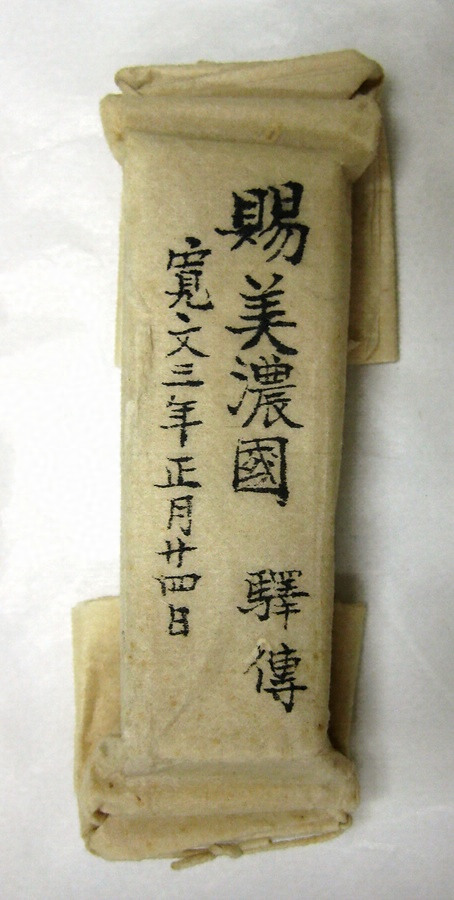 賜美濃國 驛傳
寛文三年正月廿四日